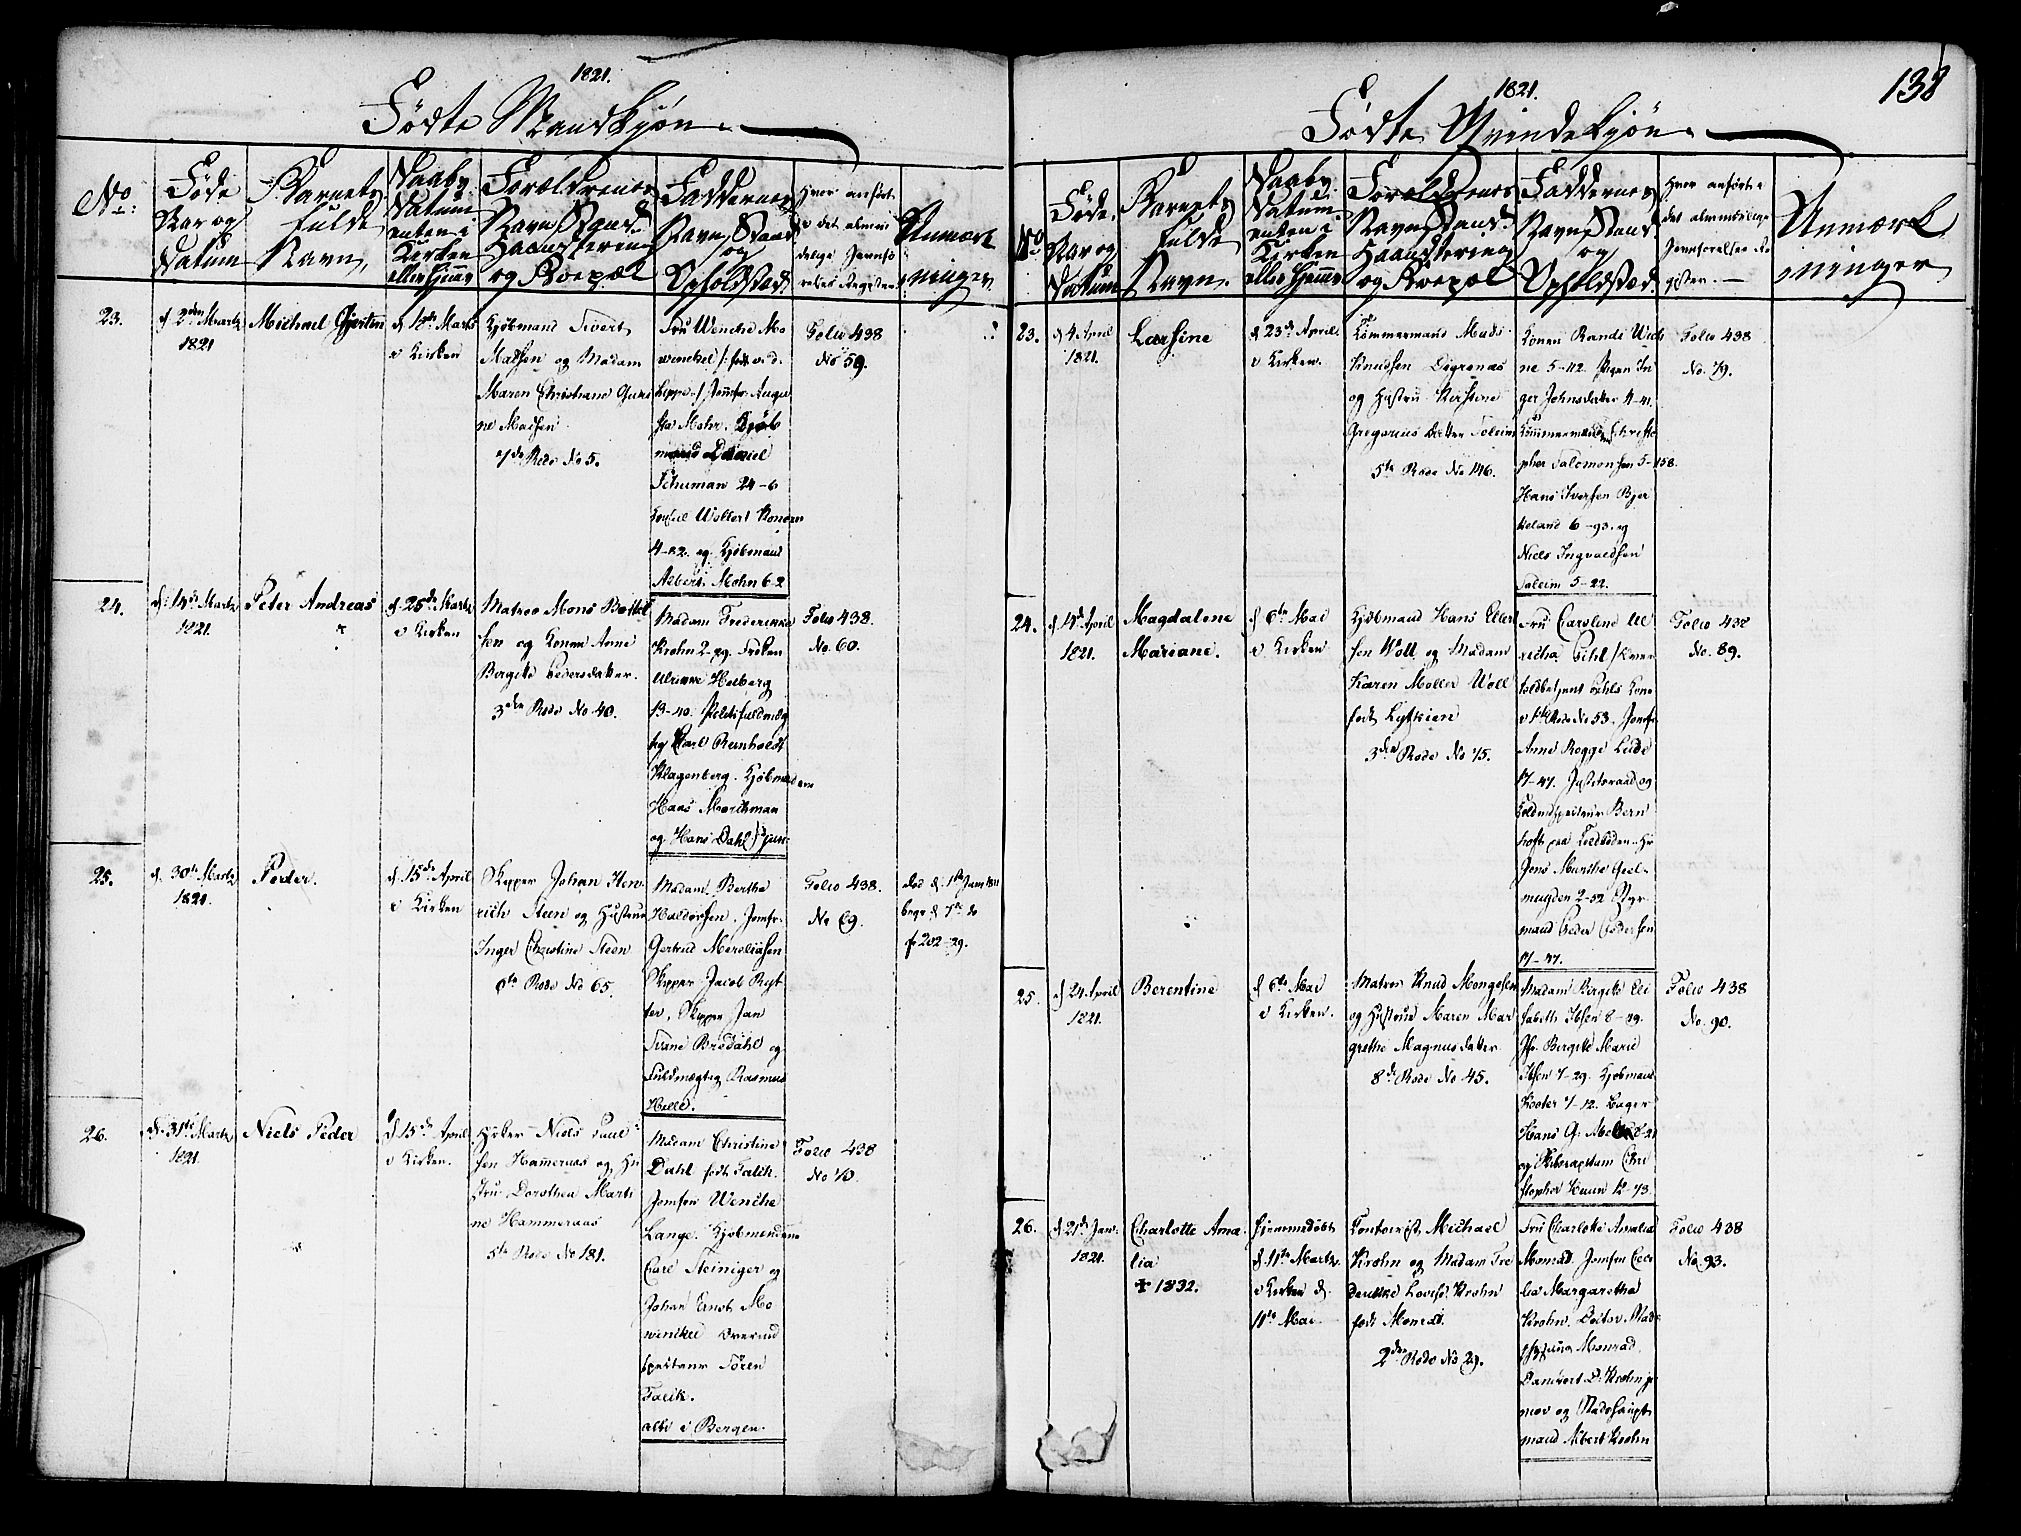 1821.
Födte Mandkjön.
No:
Föde
Aar og
Datum
Barnets
fulde
Navn,
Daabs
Datum
enten i
Kirken
eller hjemme
Forældrenes
Navn, Stand
Haandtering
og Boepæl
Faddernes
Navn, Stand
og
Opholdsted.
Hvor anfört
i det almin
delige Jevnfö
relses Register
Anmærk
ninger
23.
d 2den Martz
1821
Michael Gjertsen
d 18de Martz
i Kirken
Kjöbmand Sivert
Madsen og Madam
Maren Christiane
ne Madsen
7de Rode No 5.
Fru Wenche Mo
winckel /: född v. d.
Lippe :/ Jomfr. Augu
sta Mohr. Kjöb
mand Daniel
Schuman 24-6
Consul Wollert Konow
4-22. og Kjöbmand
Albert Mohn 6-2
Folio 438
No 59.
24.
d: 14de Martz
1821.
Peter Andreas
d. 25de Martz
i Kirken
Matros Mons Bottel
sen og Konen Anne
Bergitte Pedersdatter.
3die Rode No 40.
Madam Frederikke
Krohn 2-29. Fröken
Ulrikke Heiberg
13-40. Politifuldmæg
tig Carl Reinholdt
Klagenberg. Kjöbmændene
Haas Marchman
og Hans Dahl junr
Folio 438.
No. 60.
25.
d. 30te Martz
1821.
Peder.
d. 15de April
i Kirken
Skipper Johan Hen
rich Steen og Hustrue
Inger Christine Steen
6te Rode No 65.
Madam Berthe
Haldorsen. Jomfr.
Gertrud Mereliasen
Skipper Jacob Ryt
ter, Skipper Jan
Svane Bredahl og
Fuldmægtig Rasmus
Helle.
Folio 438.
No 69.
død d. 1te
begr d 7de do
fo 202-29.
26.
d. 31te Martz
1821.
Niels Peder
d. 15de April
i Kirken.
Höker Niels Paul
sen Hammeraas og Hu
stru Dorothea Marti
ne Hammeraas
5te Rode No 181.
Madam Christine
Dahl född Falch.
Jomfru Wenche
Lange. Kjöbmændene
Carl Steiniger og
Johan Ernst Mo
winckel Overind
specteur Sören
Falck.
alle i Bergen.
Folio 438
No 70.
138
1821.
Födte Qvindekjön.
No
Föde
Aar og
Datum
Barnets
fulde
Navn.
Daabs
Datum
enten i
Kirken
eller hjemme
Forældrenes
Navn, Stand
Haandtering
og Boepæl
Faddernes
Navn, Stand
og
Opholdsted.
Hvor anfört i
det almindelige
Jevnförelses Re
gister.
Anmærk
ninger
23.
d 4. April
1821.
Larsine
d 23de April.
i Kirken.
Tömmermand Mads
Knudsen Digranæs
og Hustru Kirstine
Gregorius datter Soleim
5te Rode No 146.
Konen Rande Wich
ne 5-112. Pigen In
ger Johnsdatter 4-41.
Tömmermænd Christo
pher Salomonsen 5-158.
Hans Iversen Bjer
keland 6-93. og
Niels Ingvaldsen
Saleim 5-22.
Folio 438
No. 79.
24.
d 14de April
1821.
Magdalene
Mariane.
d 6te Mai
i Kirken
Kjöbmand Hans Eilert
sen Woll og Madam
Karen Möller Woll
född Lytkien
3die Rode No 75.
Fru Caroline Ul
richa Pihl
toldbetjent Pihls Kone
i 1te Rode No 53. Jomfr
Anne Rogge Ludde
17-47. Justitsraad og
Toldinspecteur Bern
hoft paa Toldboden. Hr
Jens Munthe Geel
muyden 2-52 Styr
mand Peder Pedersen
17-47.
Folio 438
No. 89.
25.
d 24 April
1821.
Berentine
d 6te Mai
i Kirken.
Matros Knud Mongesen
og Hustrue Maren Mar
grethe Magnusdatter
8de Rode No 45.
Madam Bergitte Eli
sabeth Ibsen 8-29.
Jfr. Bergitte Marie
Ibsen 7-29. Kjöbmand
Kooter 7-12. Bager
Hans G.
og Skibscaptain Chri
stopher Heun 12-73.
Folio 438
No. 90.
26.
d 21de Janr
1821.
Charlotte Ama
lia
✝ 1832.
hjemmedöbt
d. 11te Martz.
i Kirken d.
11te Mai
Contorist Michael
Krohn og Madam Fre
derikke Lovise Krohn
född Monrad.
2den Rode No 29.
Fru Charlotte Amalia
Monrad. Jomfru Ceci
lia Margaretha
Krohn. Doctor
Monrad,
Danckert D. Krohn ju
nior og Stadshaupt
mand Albert Krohn
Folio 438
No. 93.